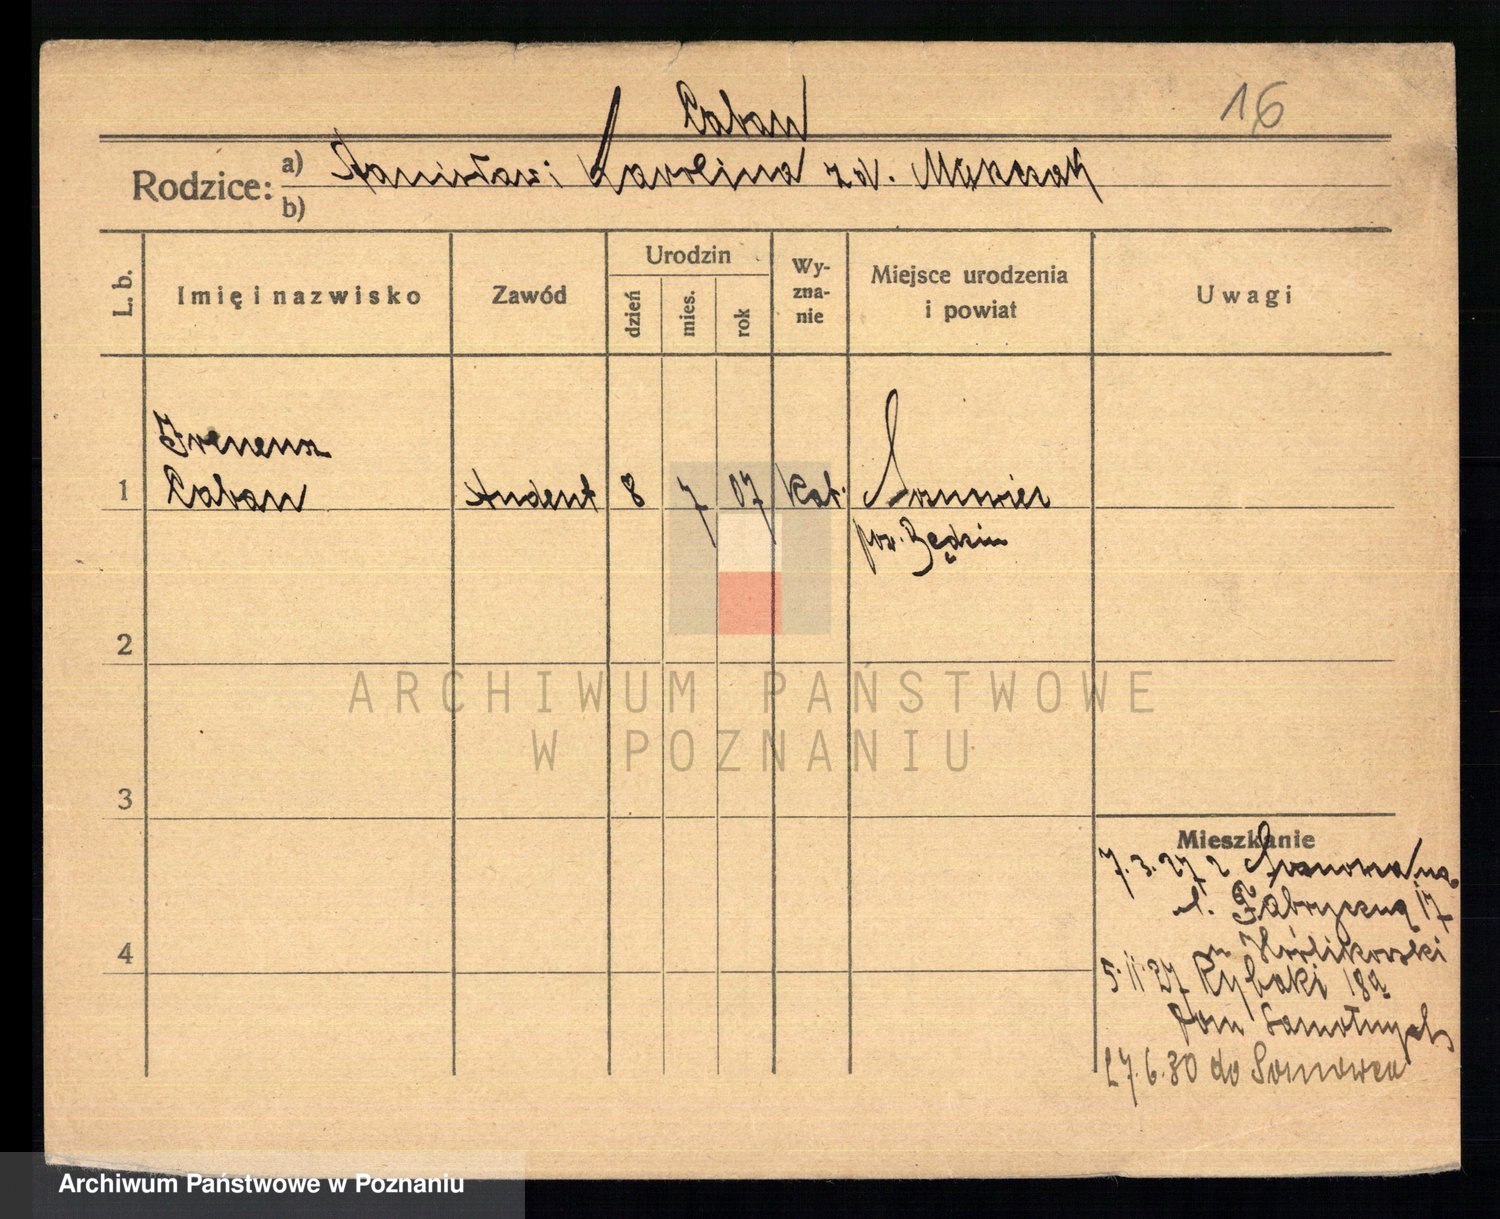 16
Caban
Rodzice: a) Stanisław i Karolina zd. Mączak
b)
L. b. Imię i nazwisko Zawód Urodzin dzień mies. rok Wy-zna-nie Miejsce urodzenia i powiat Uwagi
Ireneusz
1 Caban student 8 7 07 kat. Sosnowiec
pow. Będzin
2
ARCHIWUM PAŃSTWOWE
W POZNANIU
3
Mieszkanie
7.3.27 z Sosnowca na
ul. Fabryczną 17
u Królikowski
4
5.11.27 Rybaki 18a
Dom Samotnych
27.6.30 do Sosnowca
Archiwum Państwowe w Poznaniu